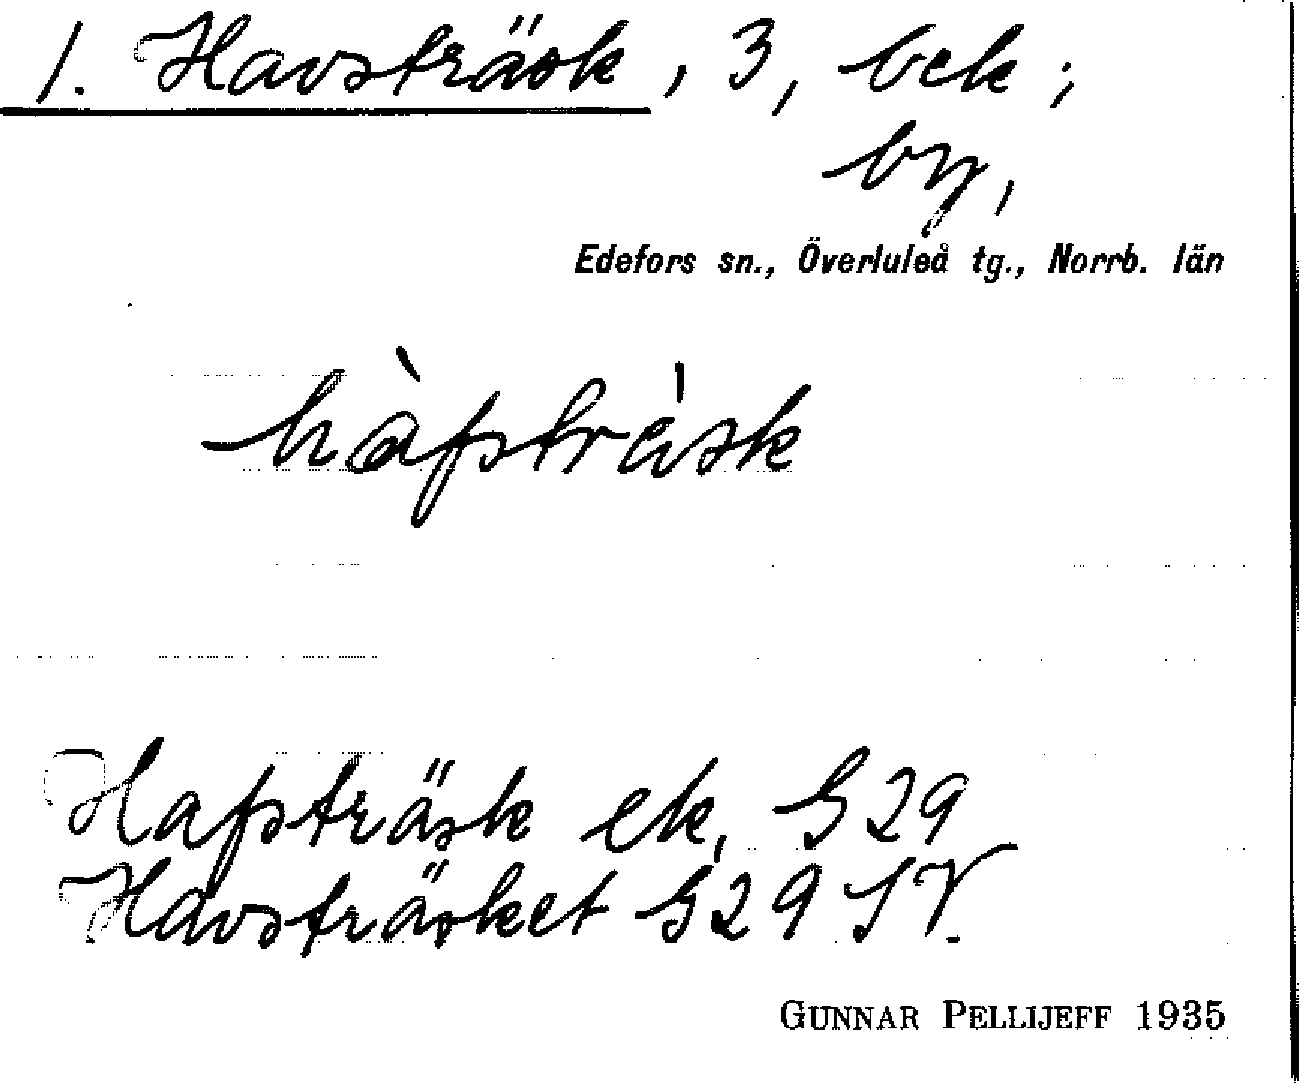 1. Havsträsk, 3, bek;
by,
Edefors sn., Överluleå tg., Norrb. län
hàpstrèsk
Hafsträsk ek. G29
Havsträsket G29 SV.
GUNNAR PELLIJEFF 1935